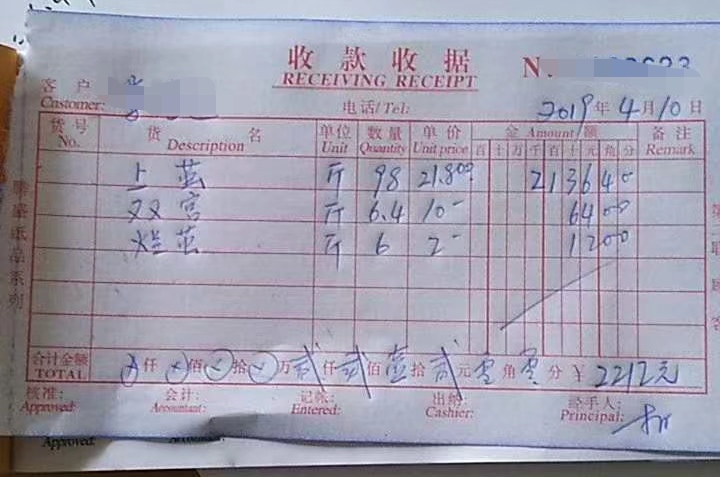 收款收据
RECEIVING RECEIPT
N
客户
Customer:
电话/Tel:
2019年4月10日
货号 No. 货名 Description 单位 Unit 数量 Quantity 单价 Unit price 金 Amount 额 百十万千百十元角分 备注 Remark
上茧 斤 98 21.80 213640
双宫 斤 6.4 10- 6400
烂茧 斤 6 2- 1200
合计金额 TOTAL 仟 佰 拾 万 贰仟贰佰壹拾贰元零角零分 ¥ 2212元
核准: Approved: 会计: Accountant: 记帐: Entered: 出纳: Cashier: 经手人: Principal:
Approved: